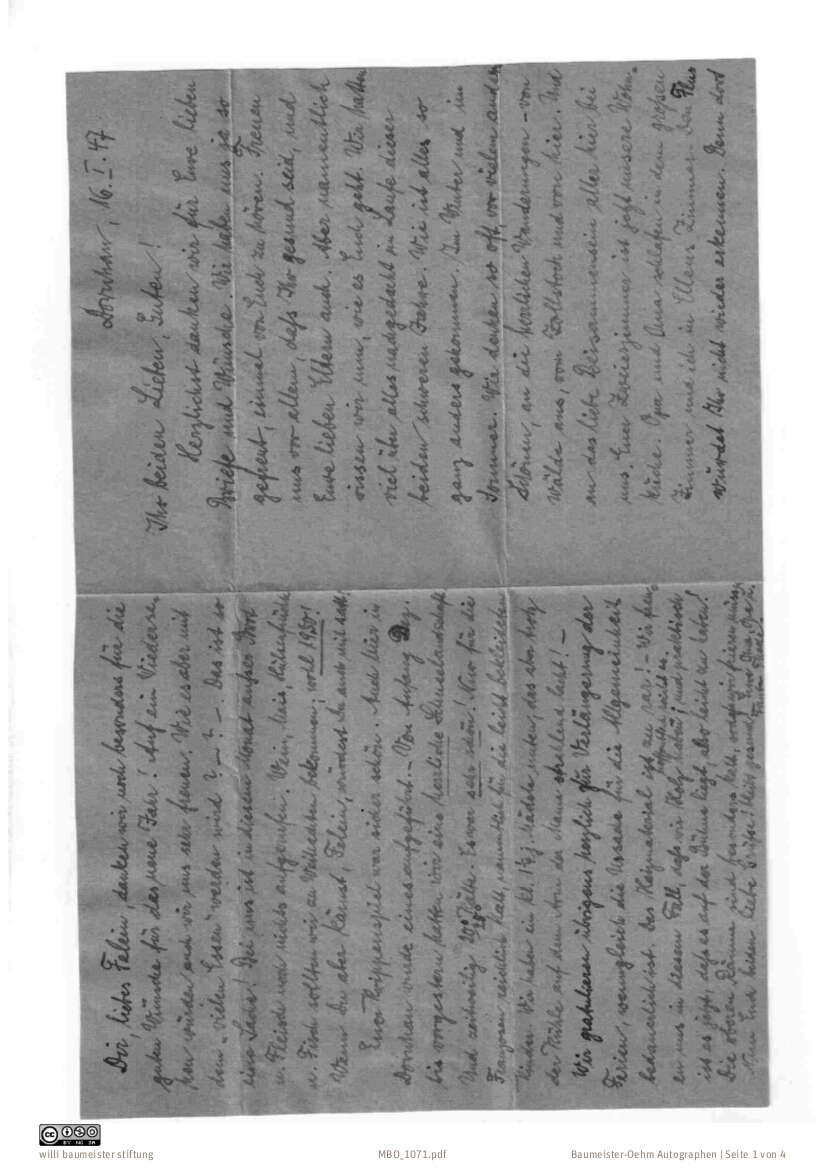 Dornhan, 16. I. 47
Ihr beiden Lieben, Guten!
Herzlichst danken wir für Eure lieben
Briefe und Wünsche. Wir haben uns ja so
gefreut, einmal von Euch zu hören. Freuen
uns vor allem, daß Ihr gesund seid, und
Eure lieben Eltern auch. Aber namentlich
wissen wir nun, wie es Euch geht. Wir hatten
viel über alles nachgedacht im Laufe dieser
beiden schweren Jahre. Wie ist alles so
ganz anders gekommen. Im Winter und im
Sommer. Wir denken so oft, vor vielem andern
Schönen, an die herrlichen Wanderungen - von
Wälde aus, vom Zollstock und von hier. Und
an das liebe Beisammensein aller hier bei
uns. Euer Zweierzimmer ist jetzt unsere Wohn-
küche. Opa und Oma schlafen in dem großen
Zimmer und ich in Ellens Zimmer. Den Flur
würdet Ihr nicht wieder erkennen. Denn dort
Dir, liebes Felein, danken wir noch besonders für die
guten Wünsche für das neue Jahr! Auf ein Wiederse-
hen würden auch wir uns sehr freuen. Wie es aber mit
dem „vielen Essen" werden wird ? - ? -. Das ist so
eine Sache! Bei uns ist in diesem Monat außer Brot
u. Fleisch noch nichts aufgerufen. Wein, Reis, Hülsenfrüchte
u. Fisch sollten wir zu Weihnachten bekommen, wohl 1950!
Wenn Du aber kämst, Felein, würdest Du auch mit satt.
Euer Krippenspiel war sicher schön. Auch hier in
Dornhan wurde eines aufgeführt. - Von Anfang Dez.
bis vorgestern hatten wir eine herrliche Schneelandschaft
Und zeitweilig 20° Kälte. Es war sehr schön! Nur für die
Franzosen reichlich kalt, namentlich für die leicht bekleideten
Kinder. Wir haben ein kl. 1½ j. Mädele unter, das aber trotz
der Kühle auf dem Arm der Mama strahlend lacht! -
Wir gratulieren übrigens herzlich zur Verlängerung der
Ferien, wenngleich die Ursache für die Allgemeinheit
bedauerlich ist. Das Heizmaterial ist zu rar! - Wir freu-
en uns in diesem Fall, daß wir Holz haben; und praktisch
ist es jetzt, daß es auf der Bühne liegt, also leicht zu haben!
Die oberen Räume sind besonders kalt, wenn wir frieren
Nun Euch beiden liebe Grüße; bleibt gesund! Eure Oma, Opa u.
willi baumeister stiftung
MBO_1071.pdf
Baumeister-Oehm Autographen | Seite 1 von 4